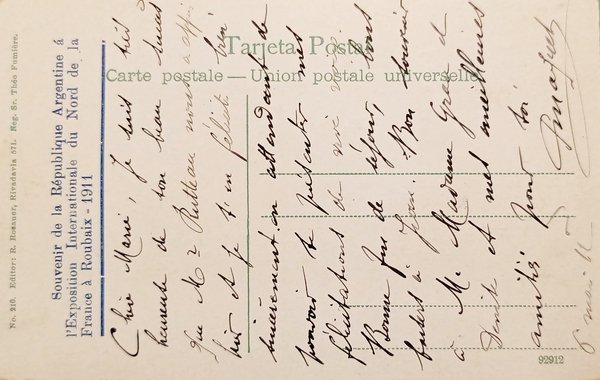 Tarjeta Postal
Carte postale — Union postale universelle
Souvenir de la République Argentine á
l'Exposition Internationale du Nord de la
France à Roubaix - 1911
No. 210. Editor: R. Rosauer, Rivadavia 571. Neg. Sr. Théo Fumière.
Chère Marie, je suis très
heureuse de ton beau succès
que Mr Rutteau nous a appris
hier et je t'en félicite bien
sincèrement en attendant de
pouvoir te présenter mes
félicitations de vive voix
Bonne fin de séjour à tous
baisers à Jean. Bon souvenir
à M. Madame Gras et
Denise et mes meilleures
amitiés pour toi
6 mai 11
92912